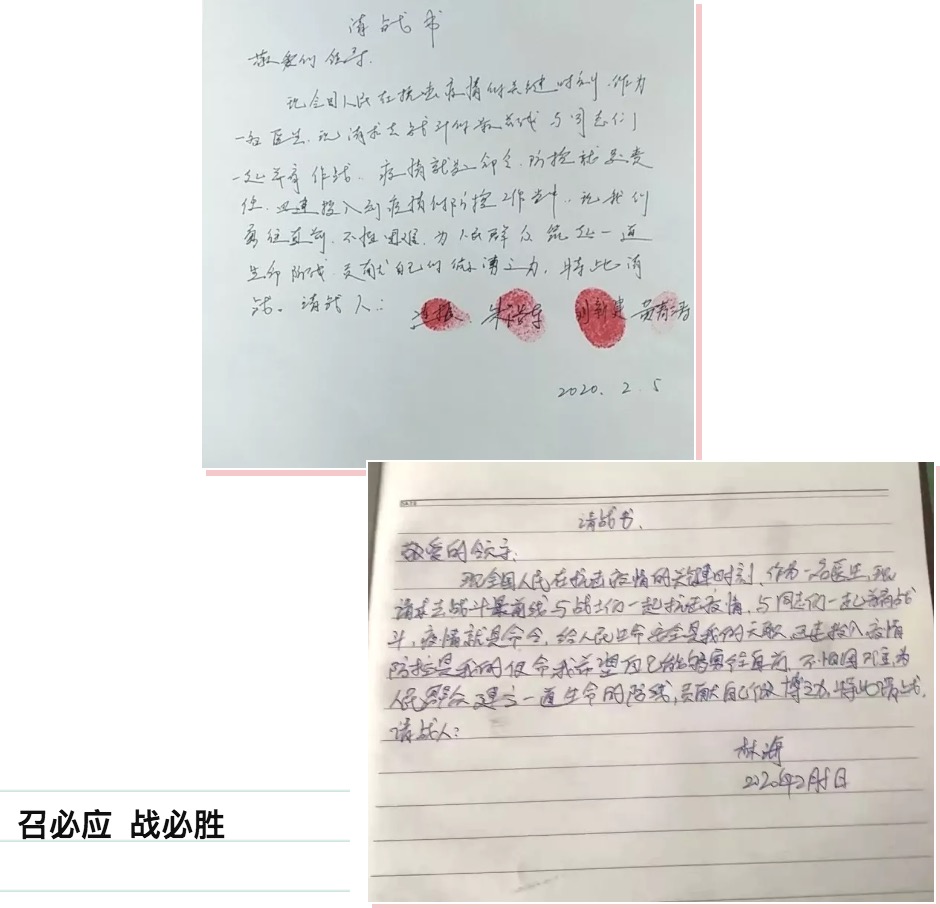 请战书
敬爱的领导.
现全国人民在抗击疫情的关键时刻.作为
一名医生.现请求去战斗的最前线与同志们
一起并肩作战.疫情就是命令.防控就是责
任.迅速投入到疫情的防控工作当中.让我们
勇往直前.不惧困难.为人民群众筑起一道
生命防线.贡献自己的微薄之力.特此请
战。请战人:
朱浩东 刘新建
2020.2.5
DATE
请战书.
敬爱的领导:
现全国人民在抗击疫情的关键时刻,作为一名医生,现
请求去战斗最前线与战士们一起抗击疫情,与同志们一起并肩战
斗,疫情就是命令,给人民生命安全是我们的天职,迅速投入疫情
防控是我们的使命,我希望自己能够勇往直前,不怕困难,为
人民群众建立一道生命的防线,贡献自己微薄之力,特此请战,
请战人:
林海
2020年2月5日
召必应 战必胜